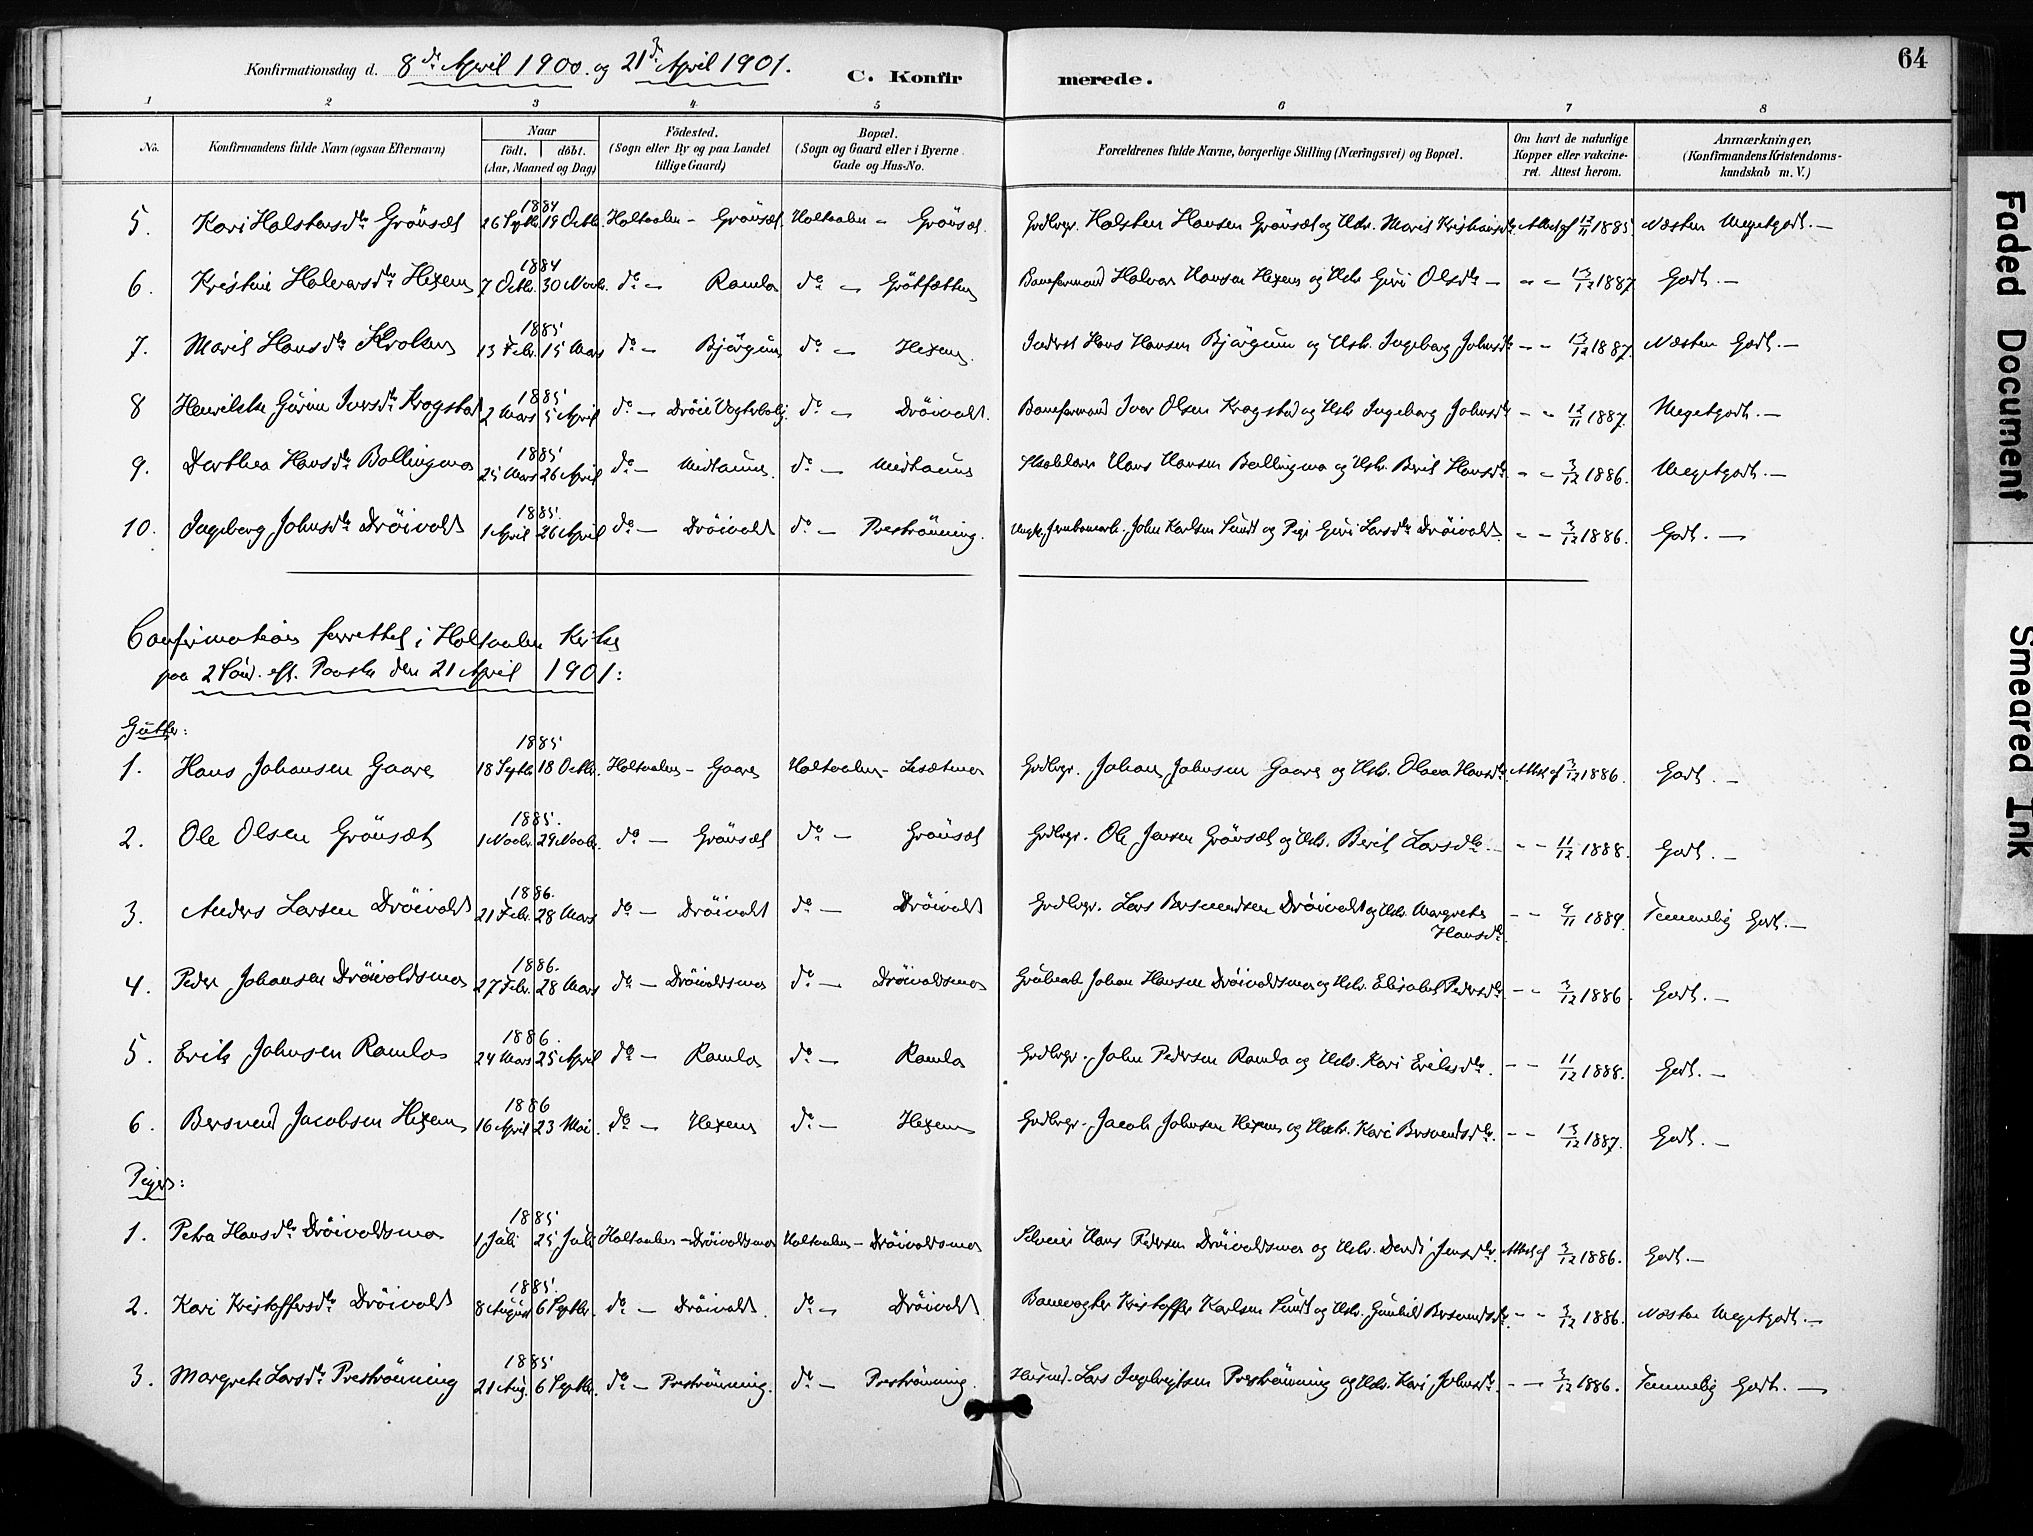 64
Konfirmationsdag d. 8de April 1900. og 21de April 1901. C. Konfirmerede.
1 2 3 4 5 6 7 8
No. Konfirmandens fulde Navn (ogsaa Efternavn) Naar födt. döbt. (Aar, Maaned og Dag) Födested. (Sogn eller By og paa Landet tillige Gaard) Bopæl. (Sogn og Gaard eller i Byerne Gade og Hus-No. Forældrenes fulde Navne, borgerlige Stilling (Næringsvei) og Bopæl. Om havt de naturlige Kopper eller vakcineret. Attest herom. Anmærkninger. (Konfirmandens Kristendomskundskab m. V.)
1884
5. Kari Halstensdtr. Grönset 26 Septbr. 19 Octbr. Holtaalen - Grönset. Holtaalen - Grönset. Grdbrgr. Halsten Hansen Grönset og Hstr. Marit Attest af 12/11 1885. Næsten Megetgodt. -
1884
6. Kristine Halvarsdtr. Hexem 7 Octbr. 30 Novbr. do - Ramlo do - Grötfættene Baneformand Halvar Hansen Hexem og Hstr. Guri Olsdtr - - - 13/12 1887 Godt. -
1885
7. Marit Hansdtr. Kroken 13 Febr. 15 Mars do - Bjørgum do - Hexem. Inderst Hans Hansen Bjørgum og Hstr. Ingeborg Johnsdtr. - - 13/12 1887. Næsten Godt. -
1885
8 Henrikke Gurine Iversdtr. Krogstad 2 Mars 5 April do - Dröie Vogterbolig. do - Dröivoldt. Baneformand Iver Olsen Krogstad og Hstr Ingeborg Johnsdtr - - 12/11 1887. Megetgodt. -
1885
9. Dorthea Hansdtr. Ballingmo 25 Mars 26 April do - Midtaune. do - Midtaune Hans Hansen Ballingmo og Hstr. Berit Hansdtr. - - 3/12 1886. Megetgodt. -
1885.
10. Ingeborg Johnsdtr Dröivoldt 1 April 26 April do - Dröivoldt do - Preströnning. Ungk. Jernbanearb. John Karlsen Sundt og Pige Guri Larsdtr Dröivoldt. - - 3/12 1886. Godt. -
Confirmation forrettet i Holtaalen Kirke
paa 2 Sönd. eft. Paaske den 21 April 1901:
Gutter:
1885
1. Hans Johansen Gaare 18 Septbr. 18 Octbr. Holtaalen - Gaare Holtaalen - Grdbrgr. Johan Johnsen Gaare og Hstr. Olava Hansdtr. Attest af 3/12 1886. Godt. -
1885.
2. Ole Olsen Grönset 1 Novbr. 29 Novbr. do - Grönset do - Grönset Grdbrgr. Ole Jensen Grönset og Hstr. Berit Larsdtr. - - 11/12 1888. Godt. -
1886.
3. Anders Larsen Dröivoldt 21 Febr. 28 Mars do - Dröivoldt do - Dröivoldt Grdbrgr. Lars Bersvendsen Dröivoldt og Hstr. Margrete Hansdtr. - - 9/11 1889. Temmelig Godt. -
1886.
4. Peder Johansen Dröivoldsmo 27 Febr. 28 Mars do - Dröivoldsmo do - Dröivoldsmo Grubearb. Johan Hansen Dröivoldsmo og Hstr. Elisabet Pedersdtr. - - 3/12 1886. Godt. -
1886.
5. Erik Johnsen Ramlo 24 Mars 25 April do - Ramlo do - Ramlo Grdbrgr. John Pedersen Ramlo og Hstr. Kari Eriksdtr. - - 11/12 1888. Godt. -
1886
6. Bersvend Jacobsen Hexem 16 April 23 Mai. do - Hexem do - Hexem Grdbrgr. Jacob Johnsen Hexem og Hstr. Kari Bersvendsdtr. - - 13/12 1887. Godt. -
Piger:
1885
1. Petra Hansdtr. Dröivoldsmo 1 Juli 25 Juli Holtaalen - Dröivoldsmo Holtaalen - Dröivoldsmo Selveier Hans Pedersen Dröivoldsmo og Hstr. Jensdtr. Attest af 3/12 1886. Godt. -
1885.
2. Kari Kristoffersdtr Dröivoldt 8 August 6 Septbr. do - Dröivoldt. do - Dröivoldt. Banevogter Kristoffer Karlsen Sundt og Hstr. Gunhild Bersvendsdtr. - - 3/12 1886. Næsten Megetgodt. -
1885
3. Margrete Larsdtr. Preströnning 21 Aug. 6 Septbr. do - Preströnning. do - Preströnning. Husmd. Lars Ingbrigtsen Preströnning og Hstr. Kari Johnsdtr. - - 3/12 1886. Temmelig Godt. -
Faded Document
Smeared Ink